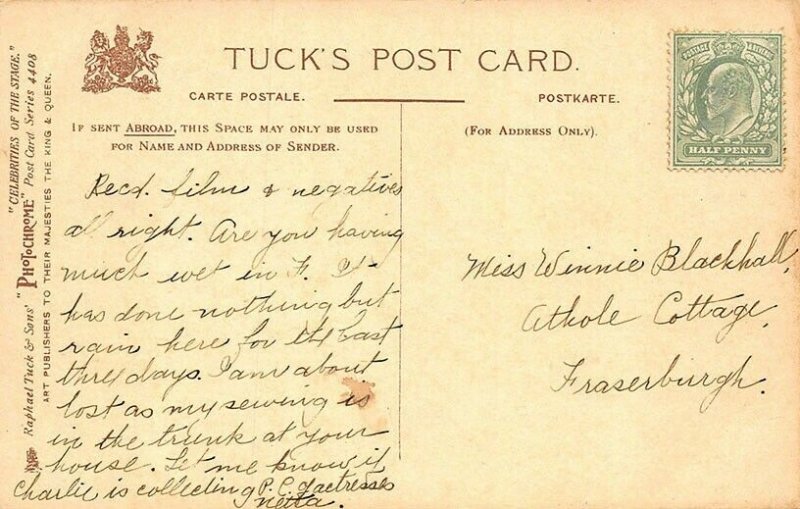 TUCK'S POST CARD.
CARTE POSTALE.
POSTKARTE.
IF SENT ABROAD, THIS SPACE MAY ONLY BE USED
FOR NAME AND ADDRESS OF SENDER.
(FOR ADDRESS ONLY).
POSTAGE & REVENUE
HALF PENNY
"CELEBRITIES OF THE STAGE."
Raphael Tuck & Sons' "PHOTOCHROME" Post Card Series 4408
ART PUBLISHERS TO THEIR MAJESTIES THE KING & QUEEN.
Recd. film & negatives
all right. Are you having
much wet in F. It
has done nothing but
rain here for the last
three days. I am about
lost as my sewing is
in the trunk at your
house. Let me know if
Charlie is collecting P.C. of actresses
Netta.
Miss Winnie Blackhall,
Athole Cottage,
Fraserburgh.